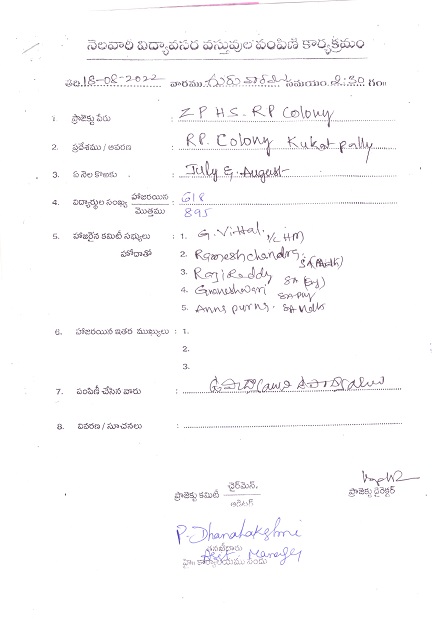 నెలవారి విద్యావసర వస్తువుల పంపిణి కార్యక్రమం
తేది.18-08-2022 వారము గురువారము సమయం 2:30 గం॥
1. ప్రాజెక్టు పేరు : ZPHS. RP Colony
2. ప్రదేశము / ఆవరణ : RP. Colony Kukatpally
3. ఏ నెల కొఱకు : July & August
4. విద్యార్థుల సంఖ్య హాజరయిన : 618
మొత్తము 895
5. హాజరైన కమిటీ సభ్యులు : 1. G. Vittal. I/c HM
హోదాతో 2. Rameshchandra. SA
3. Raji Reddy SA
4. Gnaneshwari SA
5. Anna purna. SA Maths
6. హాజరయిన ఇతర ముఖ్యులు : 1.
2.
3.
7. పంపిణీ చేసిన వారు :
8. వివరణ / సూచనలు :
ప్రాజెక్టు కమిటీ చైర్‌మెన్.
ఆడిటర్
ప్రాజెక్టు డైరెక్టర్
P. Dhanalakshmi
Manager